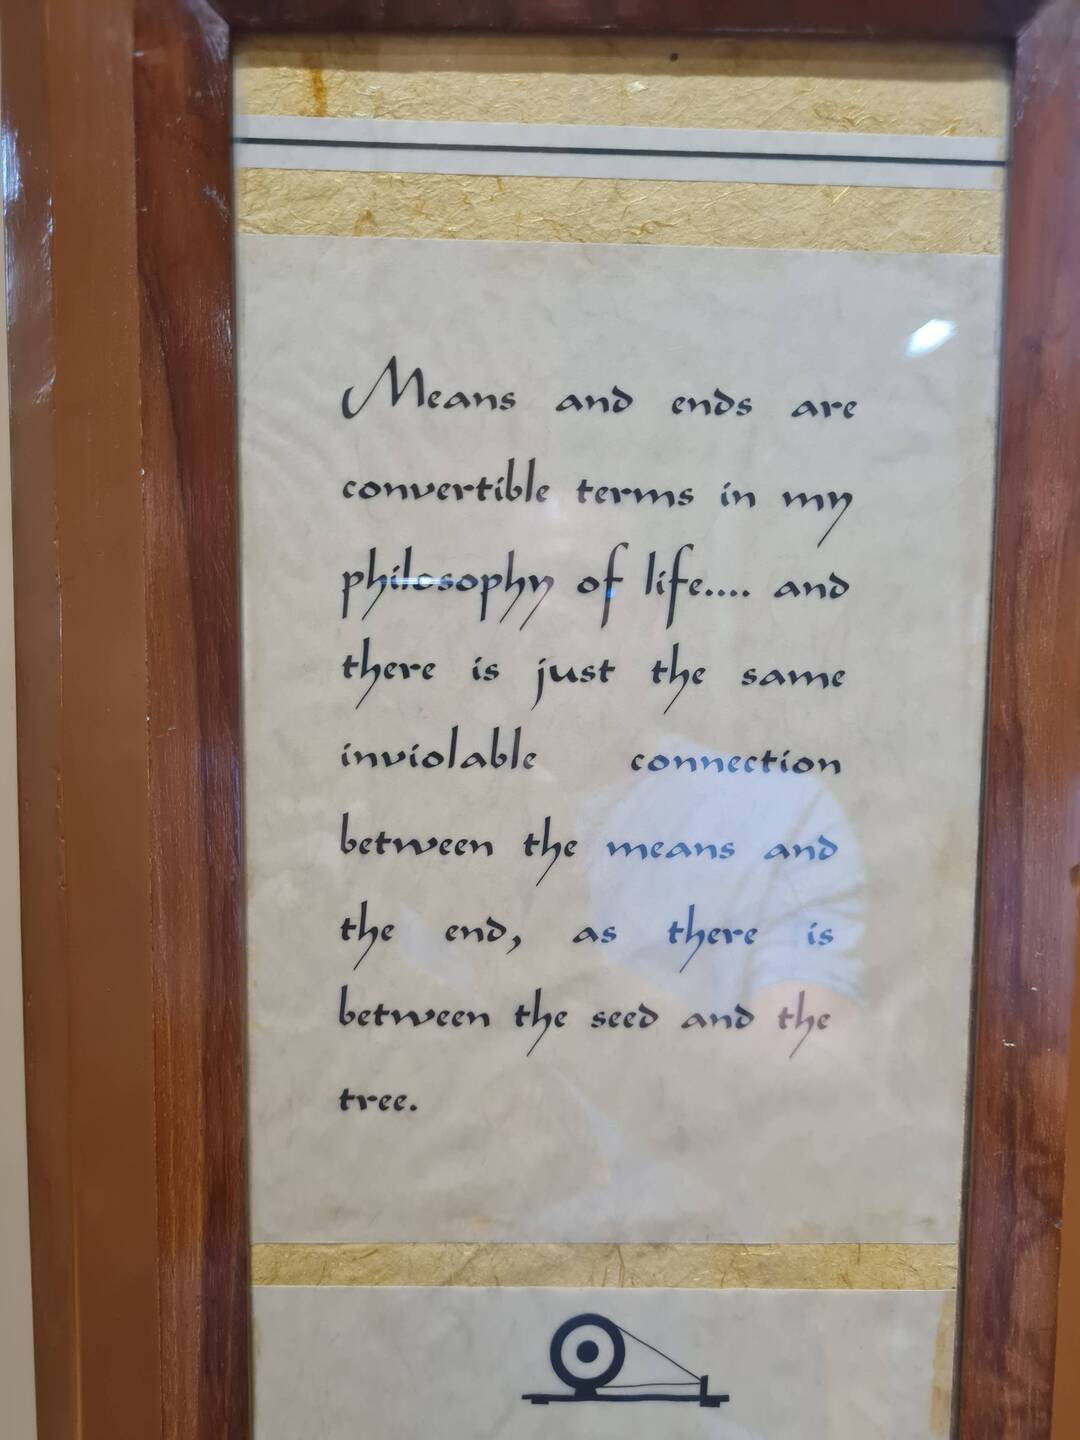 Means and ends are
convertible terms in my
philosophy of life.... and
there is just the same
inviolable connection
between the means and
the end, as there is
between the seed and the
tree.